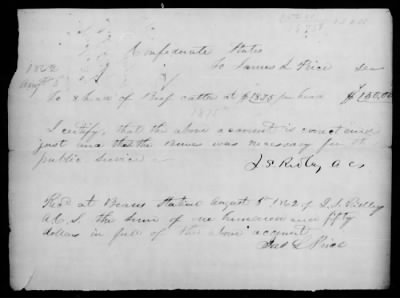 Confederate States
1862 To James L Price Dr
Augt 5
To 8 head of Beef cattle at $18.75 per head $150.00
1875
I certify, that the above account is correct and
just and that the Beeves was necessary for the
public service
A C S
Recd at Beans Station August 5th 1862 of
A.C.S. the sum of one hundred and fifty
dollars in full of the above account
Jas L Price